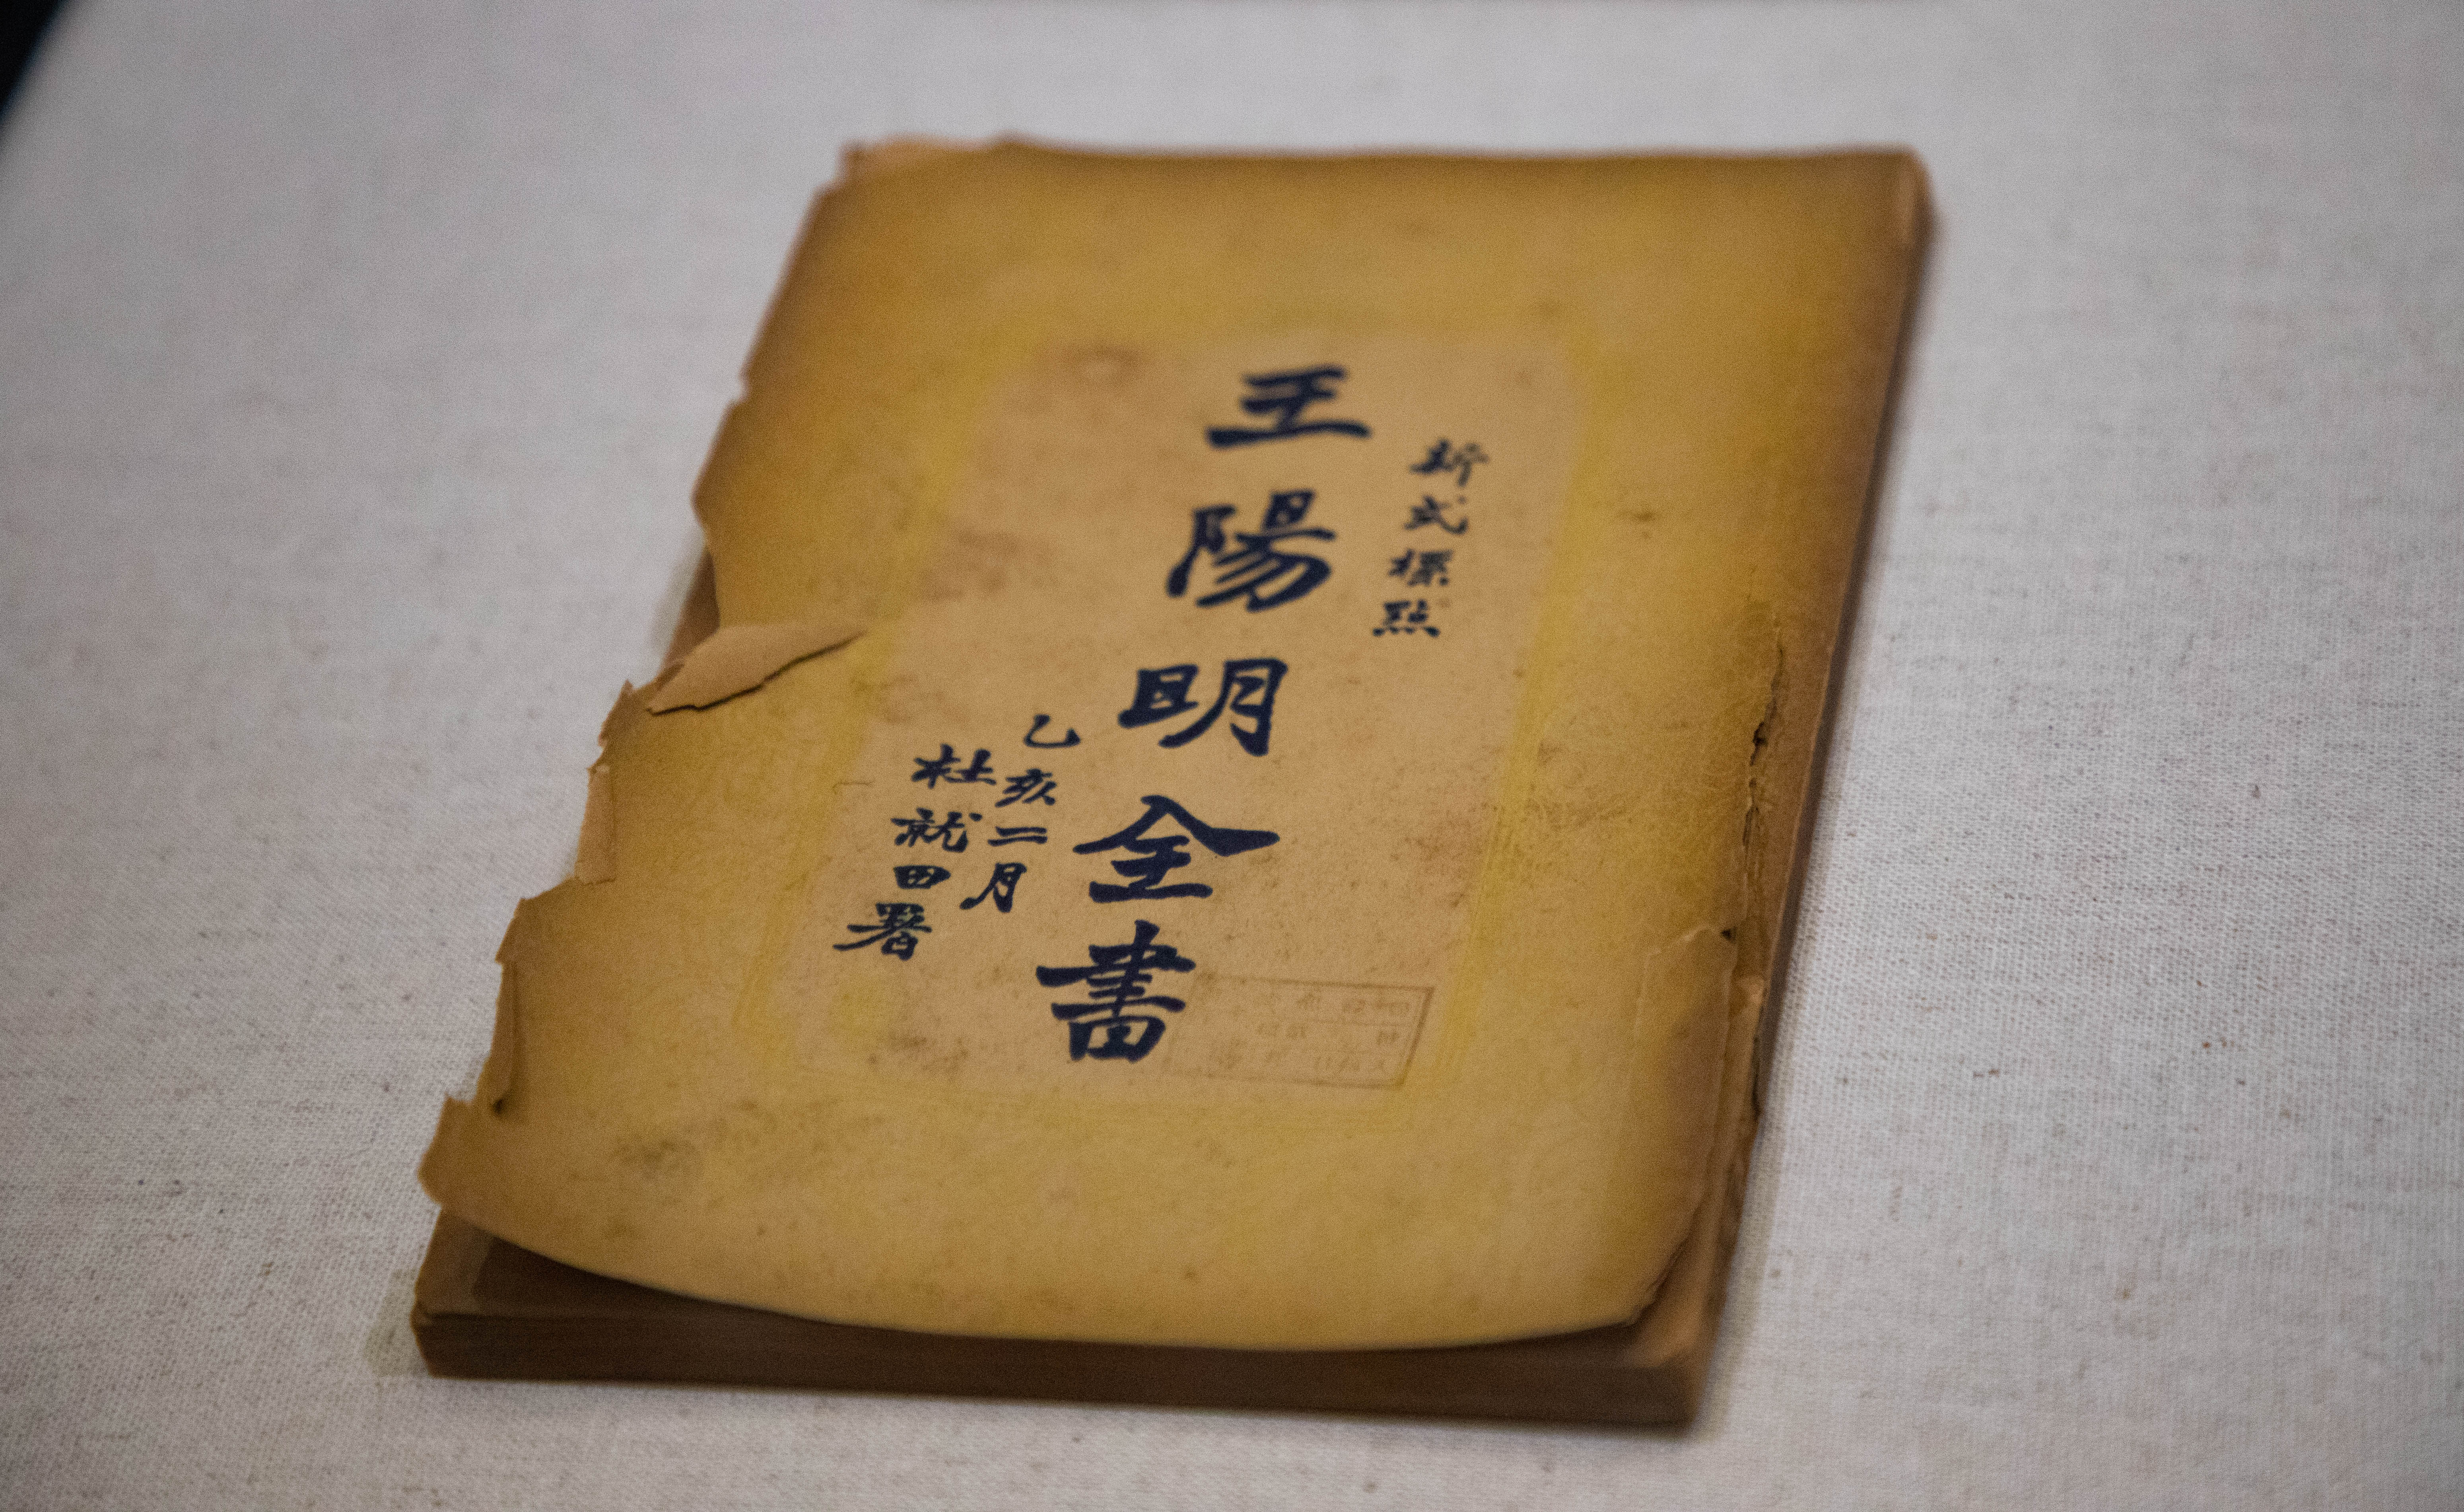 新式標點
王陽明全書
乙亥二月
杜就田署